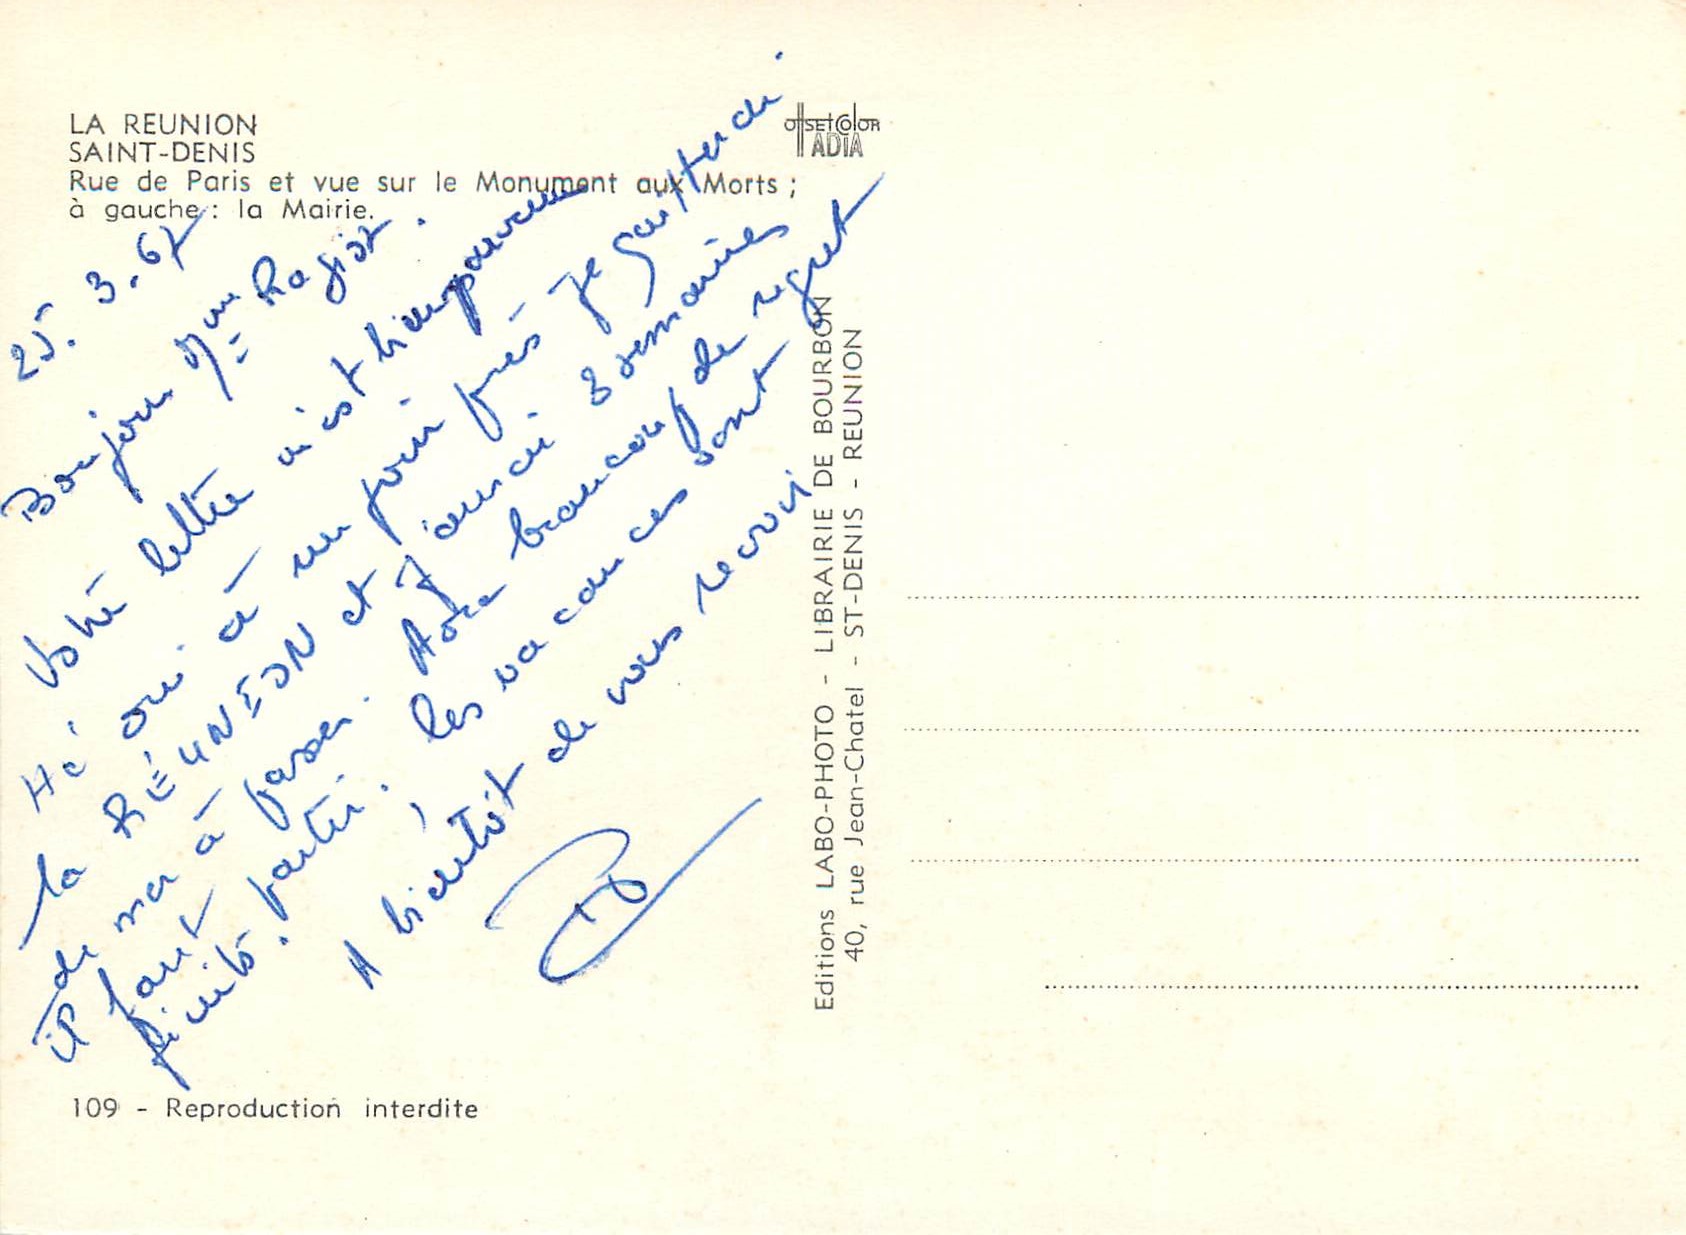 LA REUNION
SAINT-DENIS
Rue de Paris et vue sur le Monument aux Morts ;
à gauche : la Mairie.
OFFSET COLOR
ADIA
25.3.67
Bonjour Mme
Votre lettre m'est bien parvenue
Hé oui à un jour près je quitterai
la RÉUNION et j'aurai 3 semaines
de mer à passer. Avec beaucoup de regret
il faut partir, les vacances sont
finies.
A bientôt de vous revoir
Editions LABO-PHOTO - LIBRAIRIE DE BOURBON
40, rue Jean-Chatel - ST-DENIS - REUNION
109 - Reproduction interdite